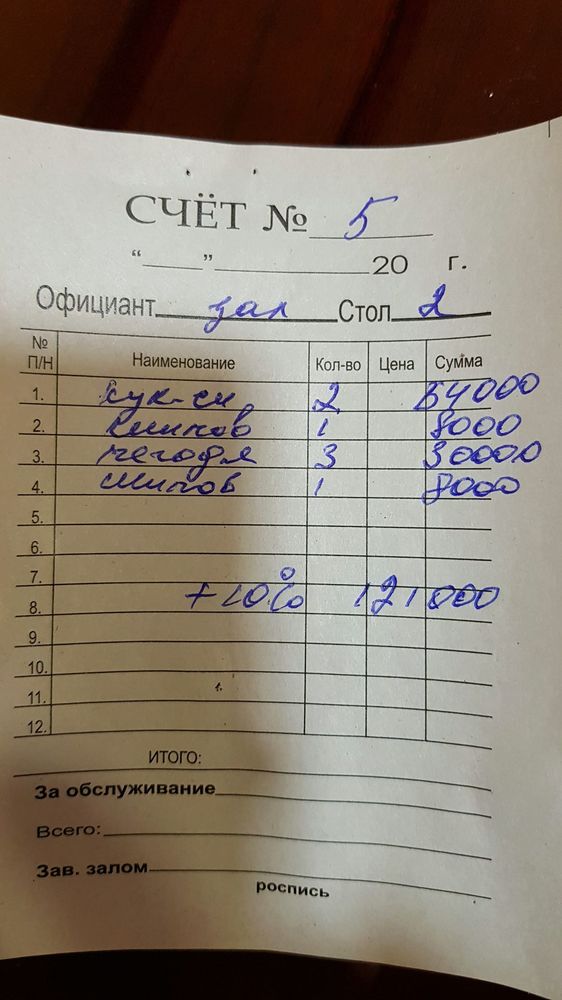 СЧЁТ № 5
“ ” 20 г.
Официант зал Стол 2
№ П/Н Наименование Кол-во Цена Сумма
1. кук-си 2 54000
2. 1 8000
3. 3 30000
4. 1 8000
5.
6.
7.
8. +10% 121000
9.
10.
11.
12.
ИТОГО:
За обслуживание
Всего:
Зав. залом
роспись